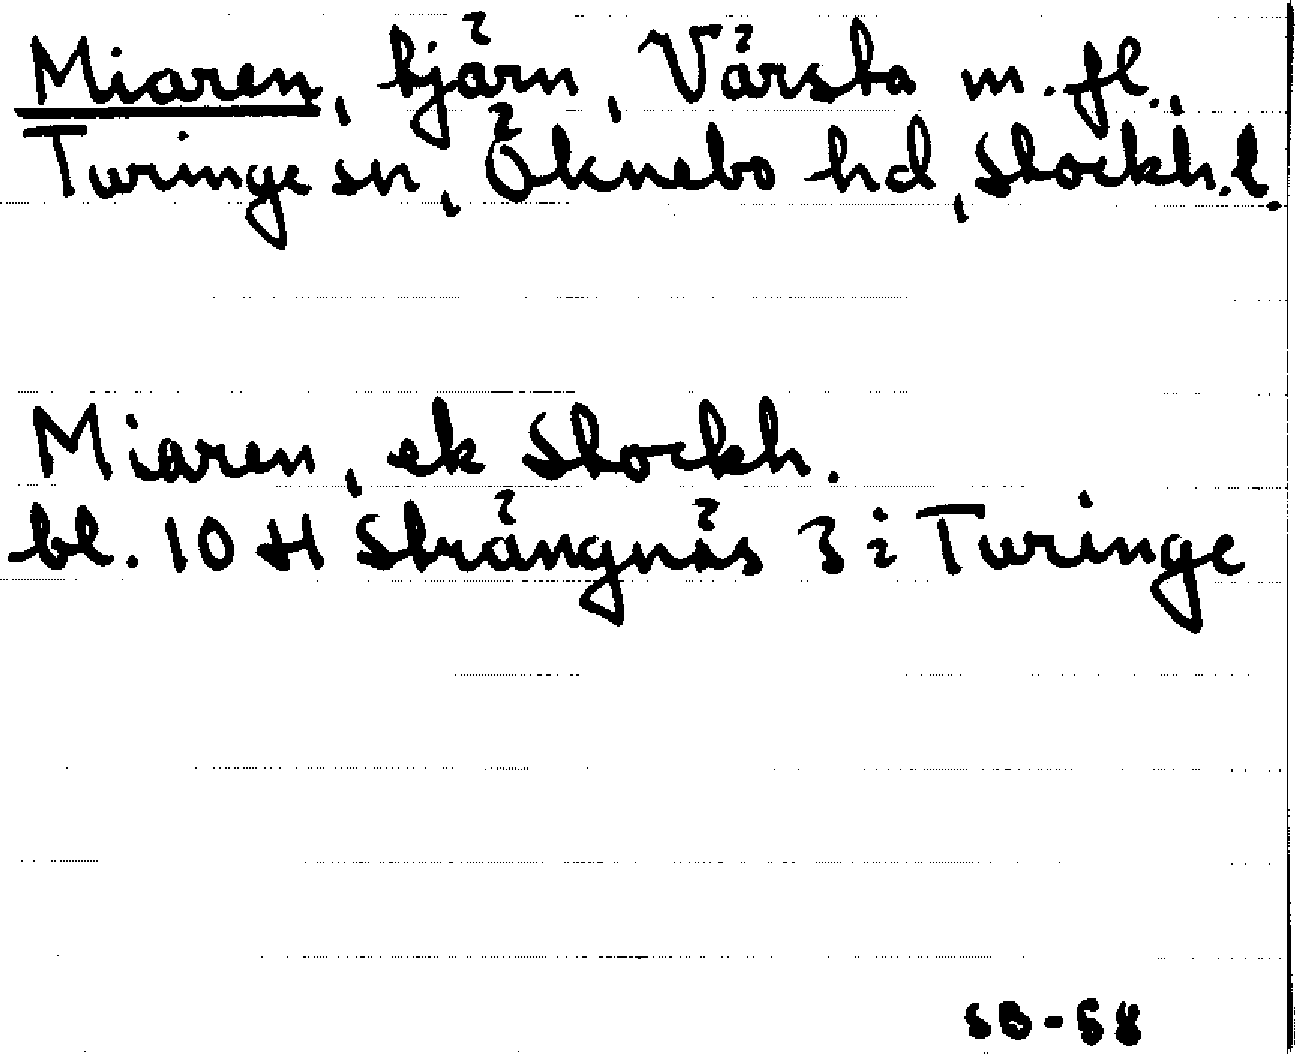 Miaren, tjärn, Vårsta m.fl.,
Turinge sn, Öknebo hd, Stockh.l.
Miaren, ek Stockh.
bl. 10 H Strängnäs 3 i Turinge
SB-58